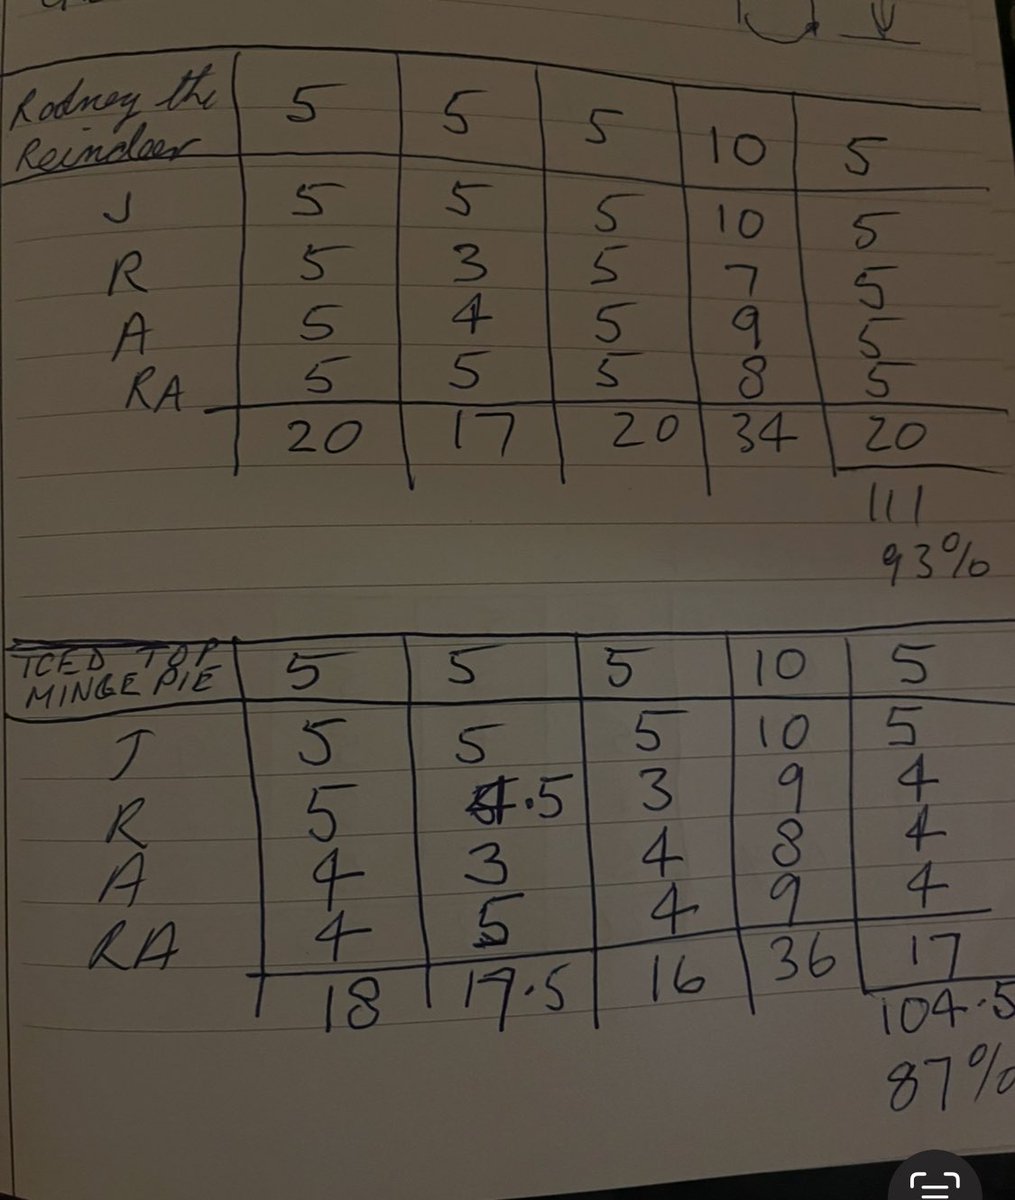 Rodney the 5 5 5 10 5
Reindeer
J 5 5 5 10 5
R 5 3 5 7 5
A 5 4 5 9 5
RA 5 5 5 8 5
20 17 20 34 20
111
93%
ICED TOP 5 5 5 10 5
MINGE PIE
J 5 5 5 10 5
R 5 4.5 3 9 4
A 4 3 4 8 4
RA 4 5 4 9 4
18 17.5 16 36 17
104.5
87%